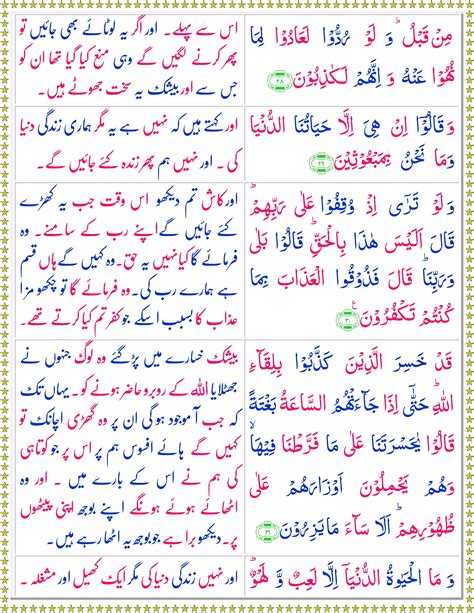 مِنْ قَبْلُ ؕ وَ لَوْ رُدُّوْا لَعَادُوْا لِمَا
نُهُوْا عَنْهُ وَ اِنَّهُمْ لَكٰذِبُوْنَ ۲۸
اس سے پہلے۔ اور اگر یہ لوٹائے بھی جائیں تو
پھر کرنے لگیں گے وہی منع کیا گیا تھا ان کو
جس سے اور بیشک یہ سخت جھوٹے ہیں۔
وَ قَالُوْۤا اِنْ هِیَ اِلَّا حَیَاتُنَا الدُّنْیَا
وَمَا نَحْنُ بِمَبْعُوْثِیْنَ ۲۹
اور کہتے ہیں کہ نہیں ہے یہ مگر ہماری زندگی دنیا
کی ۔ اور نہیں ہم پھر زندہ کئے جائیں گے۔
وَ لَوْ تَرٰۤی اِذْ وُقِفُوْا عَلٰی رَبِّهِمْ ؕ
قَالَ اَلَیْسَ هٰذَا بِالْحَقِّ ؕ قَالُوْا بَلٰی
وَرَبِّنَا ؕ قَالَ فَذُوْقُوا الْعَذَابَ بِمَا
كُنْتُمْ تَكْفُرُوْنَ ۳۰ ع
اور کاش تم دیکھو اس وقت جب یہ کھڑے
کئے جائیں گے اپنے رب کے سامنے۔ وہ
فرمائے گا کیا نہیں یہ حق۔ وہ کہیں گے ہاں قسم
ہے ہمارے رب کی۔ وہ فرمائے گا تو چکھو مزا
عذاب کا بسبب اسکے جو کفر تم کیا کرتے تھے۔
قَدْ خَسِرَ الَّذِیْنَ كَذَّبُوْا بِلِقَآءِ
اللّٰهِ ؕ حَتّٰۤی اِذَا جَآءَتْهُمُ السَّاعَةُ بَغْتَةً
قَالُوْا یٰحَسْرَتَنَا عَلٰی مَا فَرَّطْنَا فِیْهَا ۙ
وَهُمْ یَحْمِلُوْنَ اَوْزَارَهُمْ عَلٰی
ظُهُوْرِهِمْ ؕ اَلَا سَآءَ مَا یَزِرُوْنَ ۳۱
بیشک خسارے میں پڑ گئے وہ لوگ جنہوں نے
جھٹلایا اللہ کے روبرو حاضر ہونے کو ۔ یہاں تک
کہ جب آ موجود ہو گی ان پر وہ گھڑی اچانک تو
کہیں گے ہائے افسوس ہم پر اس پر جو کوتاہی
کی ہم نے اس کے بارے میں ۔ اور وہ
اٹھائے ہوئے ہونگے اپنے بوجھ اپنی پیٹھوں
پر۔ دیکھو برا ہے جو بوجھ یہ اٹھا رہے ہیں۔
وَ مَا الْحَیٰوةُ الدُّنْیَاۤ اِلَّا لَعِبٌ وَّ لَهْوٌ ؕ
اور نہیں زندگی دنیا کی مگر ایک کھیل اور مشغلہ ۔